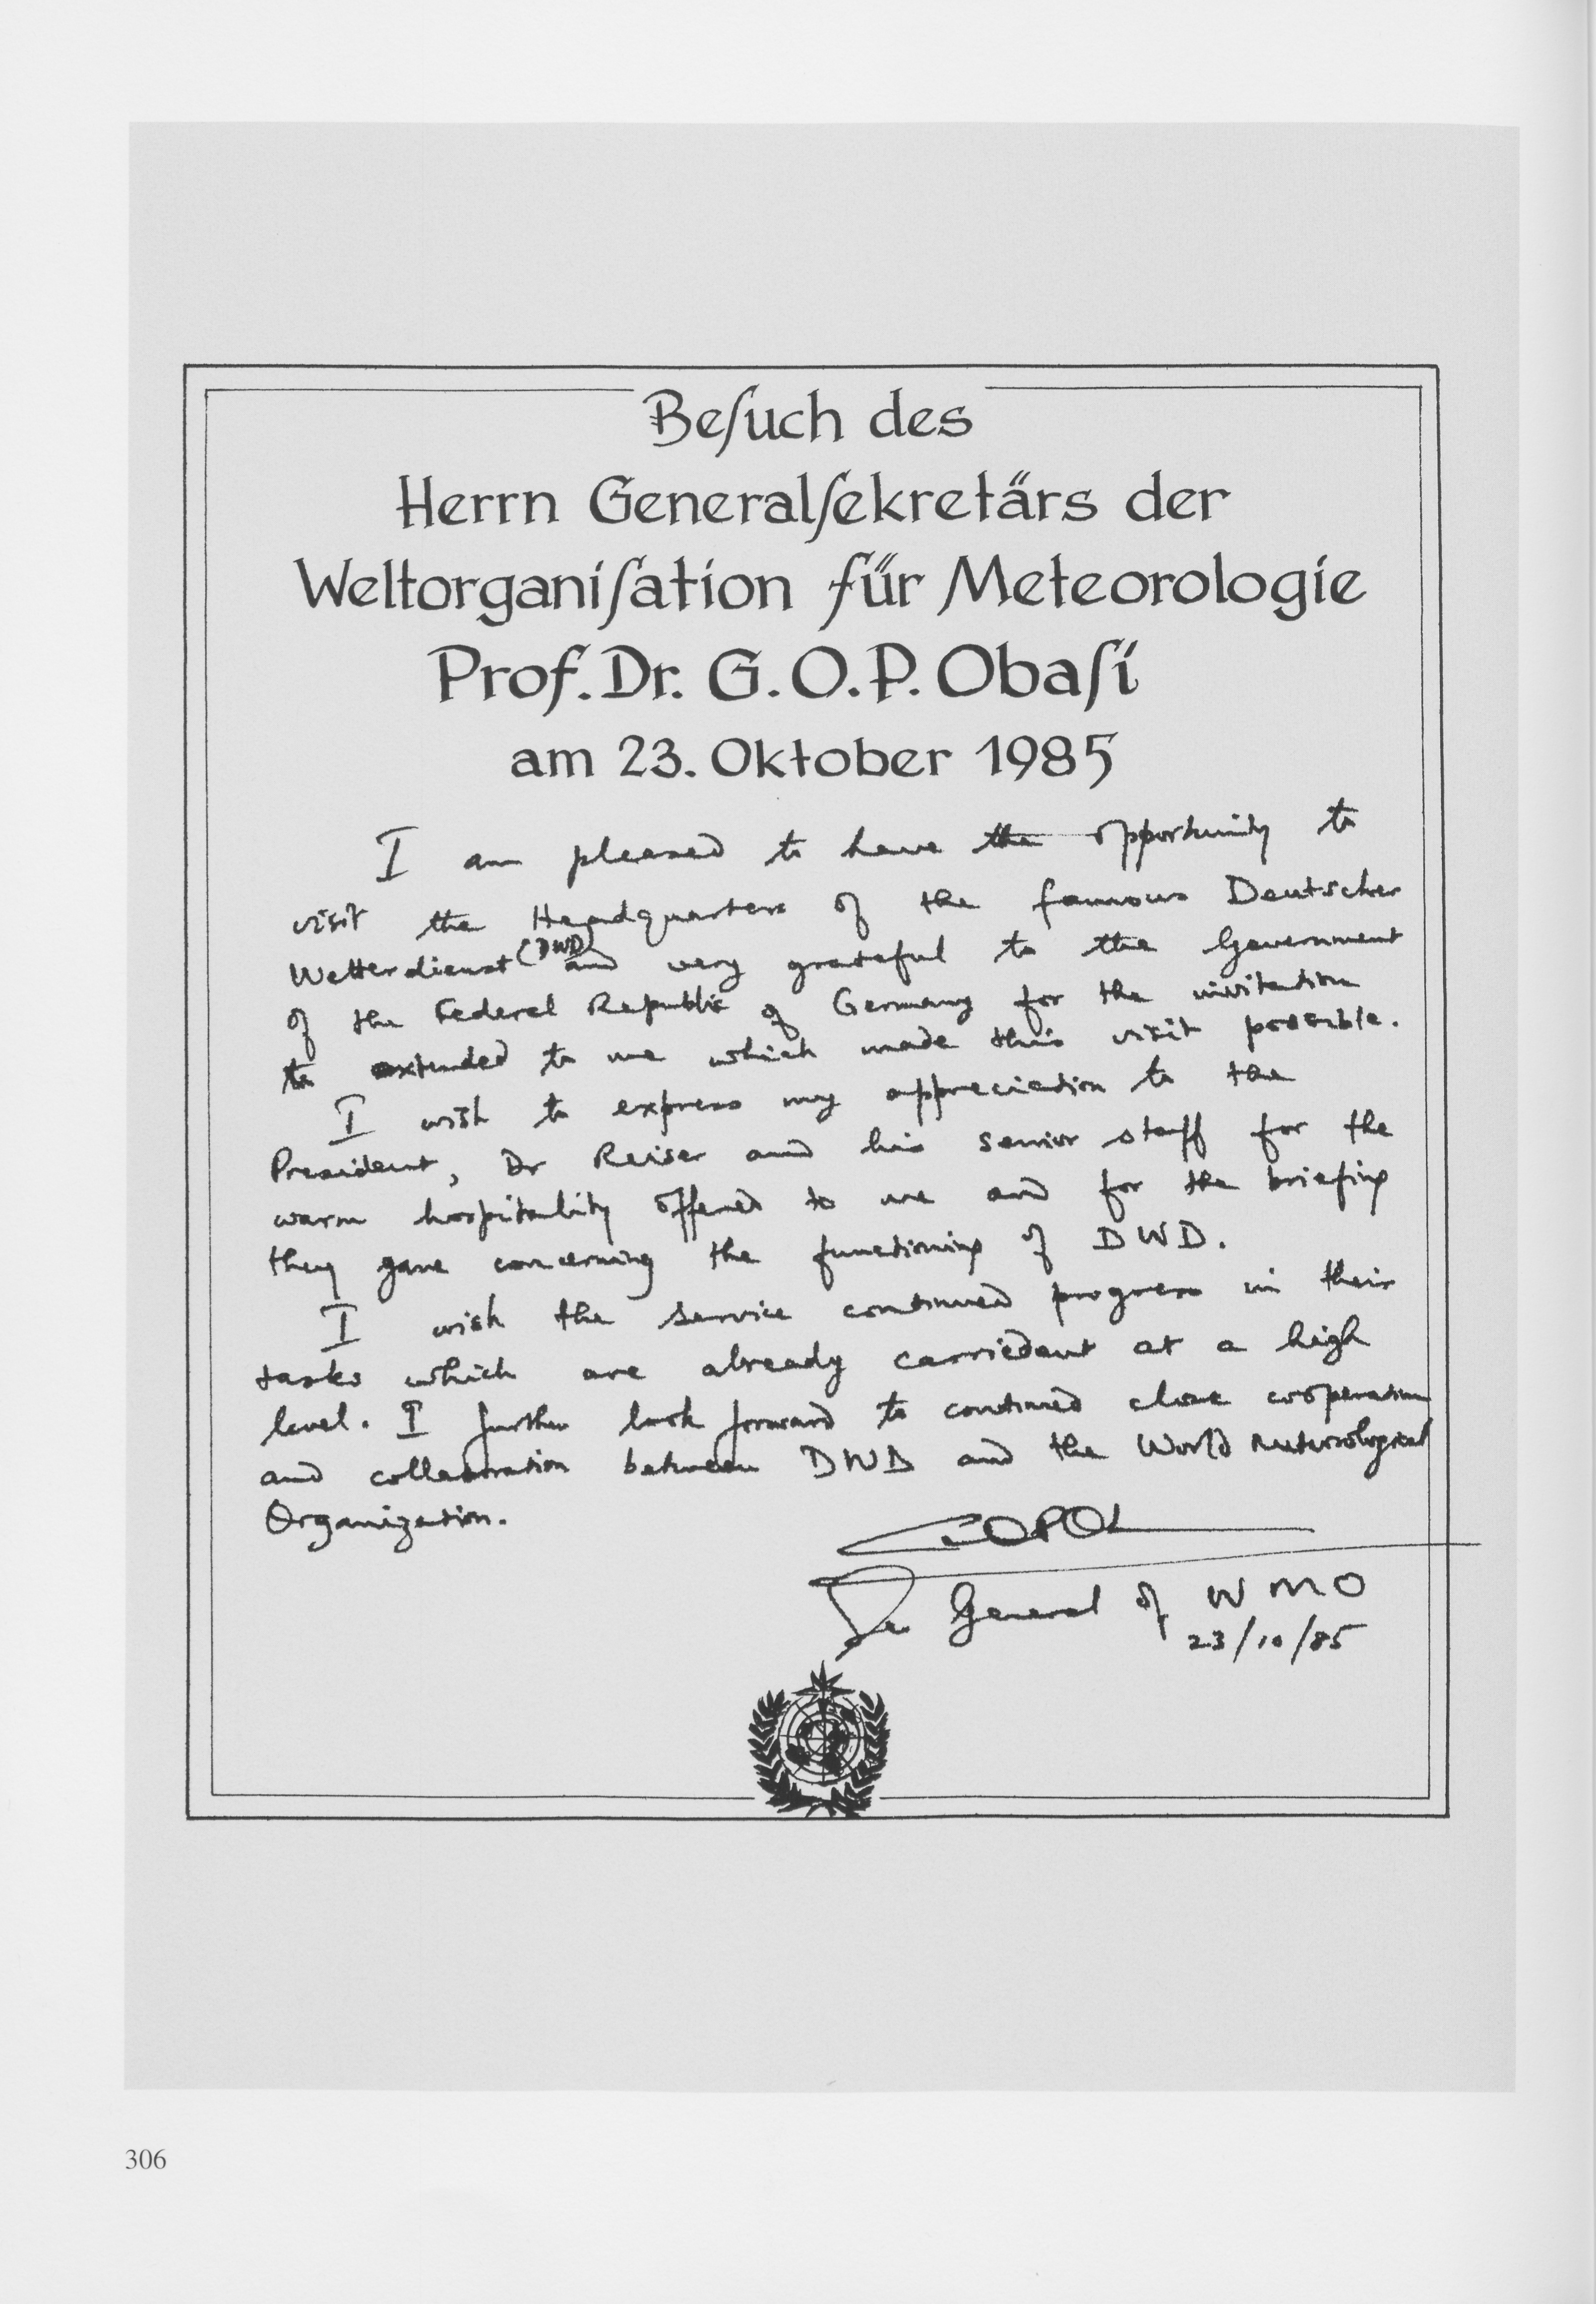 Beſuch des
Herrn Generalſekretärs der
Weltorganiſation für Meteorologie
Prof. Dr. G. O. P. Obaſi
am 23. Oktober 1985
I am pleased to have the opportunity to
visit the Headquarters of the famous Deutscher
Wetterdienst (DWD) and very grateful to the Government
of the Federal Republic of Germany for the invitation
to extended to me which made this visit possible.
I wish to express my appreciation to the
President, Dr Reiser and his senior staff for the
warm hospitality offered to me and for the briefing
they gave concerning the functioning of DWD.
I wish the service continued progress in their
tasks which are already carried out at a high
level. I further look forward to continued close cooperation
and collaboration between DWD and the World Meteorological
Organization.
General of WMO
23/10/85
306